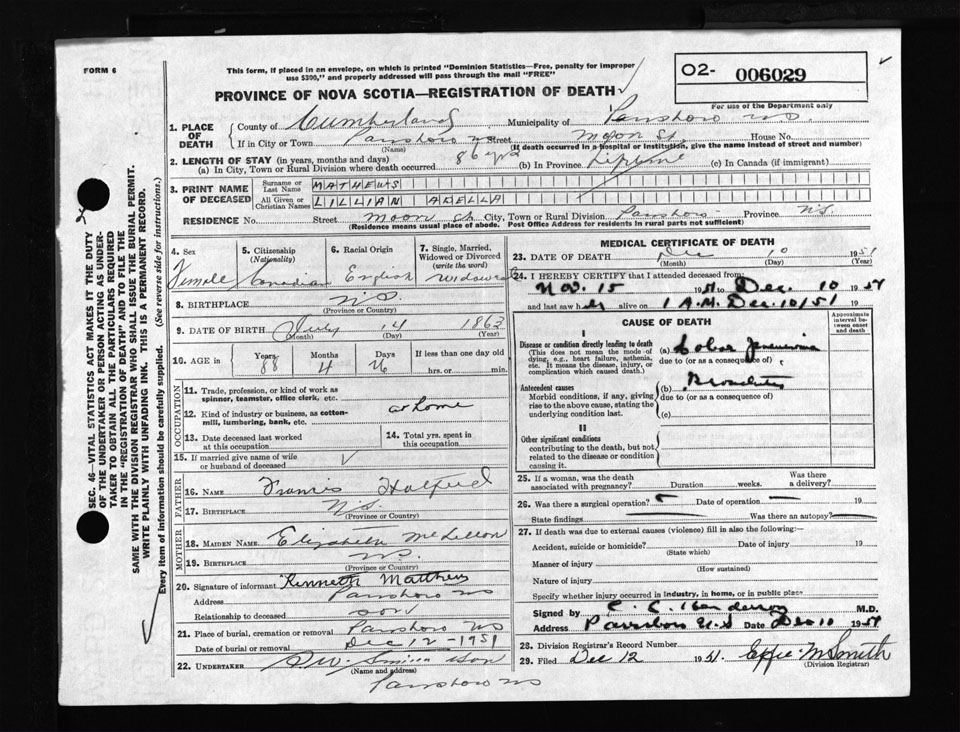 FORM 6
This form, if placed in an envelope, on which is printed "Dominion Statistics—Free, penalty for improper
use $300," and properly addressed will pass through the mail "FREE"
O2- 006029
For use of the Department only
PROVINCE OF NOVA SCOTIA—REGISTRATION OF DEATH
1. PLACE OF DEATH
County of Cumberland Municipality of Parrsboro NS.
If in City or Town Parrsboro NS Street Moon St House No.
(Name) (If death occurred in a hospital or institution, give the name instead of street and number)
2. LENGTH OF STAY (in years, months and days)
(a) In City, Town or Rural Division where death occurred 86 yrs (b) In Province Lifetime (c) In Canada (if immigrant)
3. PRINT NAME OF DECEASED
Surname or Last Name MATHEWS
All Given or Christian Names LILLIAN ADELLA
RESIDENCE No. Street Moon St City, Town or Rural Division Parrsboro Province N.S.
(Residence means usual place of abode. Post Office Address for residents in rural parts not sufficient)
4. Sex 5. Citizenship (Nationality) 6. Racial Origin 7. Single, Married, Widowed or Divorced (write the word)
Female Canadian English Widowed
8. BIRTHPLACE N.S.
(Province or Country)
9. DATE OF BIRTH July 14 1863
(Month) (Day) (Year)
10. AGE in Years Months Days If less than one day old
88 4 26 hrs. or min.
OCCUPATION
11. Trade, profession, or kind of work as spinner, teamster, office clerk, etc.
12. Kind of industry or business, as cotton-mill, lumbering, bank, etc. at home
13. Date deceased last worked at this occupation
14. Total yrs. spent in this occupation
15. If married give name of wife or husband of deceased
FATHER
16. NAME Francis
17. BIRTHPLACE N.S.
(Province or Country)
MOTHER
18. MAIDEN NAME Elizabeth McLellon
19. BIRTHPLACE NS.
(Province or Country)
20. Signature of informant Kenneth Matthews
Address Parrsboro NS
Relationship to deceased son
21. Place of burial, cremation or removal Parrsboro NS
Date of burial or removal Dec 12-1951
22. UNDERTAKER Son
(Name and address)
Parrsboro NS
MEDICAL CERTIFICATE OF DEATH
23. DATE OF DEATH Dec 10 1951
(Month) (Day) (Year)
24. I HEREBY CERTIFY that I attended deceased from
Nov. 15 1951 to Dec. 10 1951
and last saw her alive on 1 A.M. Dec. 10/51 19
CAUSE OF DEATH
Approximate interval between onset and death
I
Disease or condition directly leading to death
(This does not mean the mode of dying, e.g., heart failure, asthenia, etc. It means the disease, injury, or complication which caused death.)
(a) Lobar Pneumonia
due to (or as a consequence of)
Antecedent causes
Morbid conditions, if any, giving rise to the above cause, stating the underlying condition last.
(b) Bronchitis
due to (or as a consequence of)
(c)
II
Other significant conditions
contributing to the death, but not related to the disease or condition causing it.
25. If a woman, was the death associated with pregnancy? Duration weeks. Was there a delivery?
26. Was there a surgical operation? Date of operation 19
State findings Was there an autopsy?
27. If death was due to external causes (violence) fill in also the following:—
Accident, suicide or homicide? Date of injury 19
(State which)
Manner of injury
(How sustained)
Nature of injury
Specify whether injury occurred in industry, in home, or in public place
Signed by Henderson M.D.
Address Parrsboro N.S Date Dec 10 1951
28. Division Registrar's Record Number
29. Filed Dec 12 1951. Effie M Smith
(Division Registrar)
SEC. 46—VITAL STATISTICS ACT MAKES IT THE DUTY
OF THE UNDERTAKER OR PERSON ACTING AS UNDER-
TAKER TO OBTAIN ALL THE PARTICULARS REQUIRED
IN THE "REGISTRATION OF DEATH" AND TO FILE THE
SAME WITH THE DIVISION REGISTRAR WHO SHALL ISSUE THE BURIAL PERMIT.
WRITE PLAINLY WITH UNFADING INK. THIS IS A PERMANENT RECORD.
Every item of information should be carefully supplied. (See reverse side for instructions.)